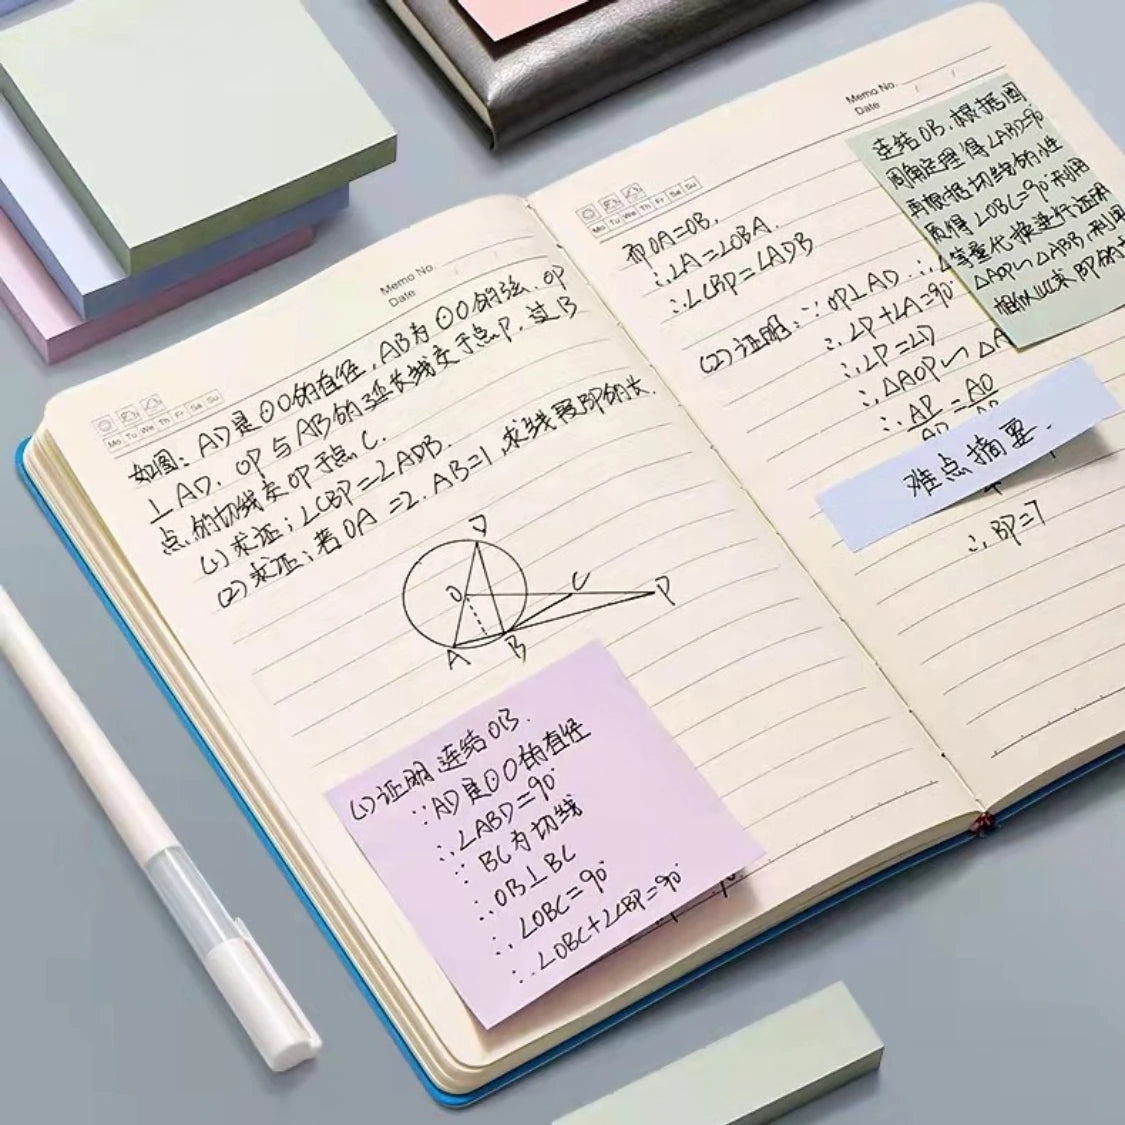 Memo No.
Date
Mo Tu We Th Fr Sa Su
如图：AD是⊙O的直径，AB为⊙O的弦，OP
⊥AD，OP与AB的延长线交于点P，过B
点的切线交OP于点C．
(1)求证：∠CBP=∠ADB．
(2)求证：若OA=2，AB=1，求线段BP的长．
D
O
C
P
A
B
(1)证明，连结OB．
∵AD是⊙O的直径
∴∠ABD=90°
∵BC为切线
∴OB⊥BC
∴∠OBC=90°
∴∠OBC+∠CBP=90°
Memo No.
Date
Mo Tu We Th Fr Sa Su
而OA=OB，
∴∠A=∠OBA．
∴∠CBP=∠ADB
(2)证明：∵OP⊥AD．∴∠
∴∠P+∠A=90°
∴∠P=∠D
∴△AOP∽△A
∴AP=AD
难点摘要．
∴BP=7
连结OB，根据圆
周角定理得∠ABD=90°
再根据切线的性
质得∠OBC=90°利用
等量代换进行证明
△AOP∽△ABB，利用
相似比求BP的